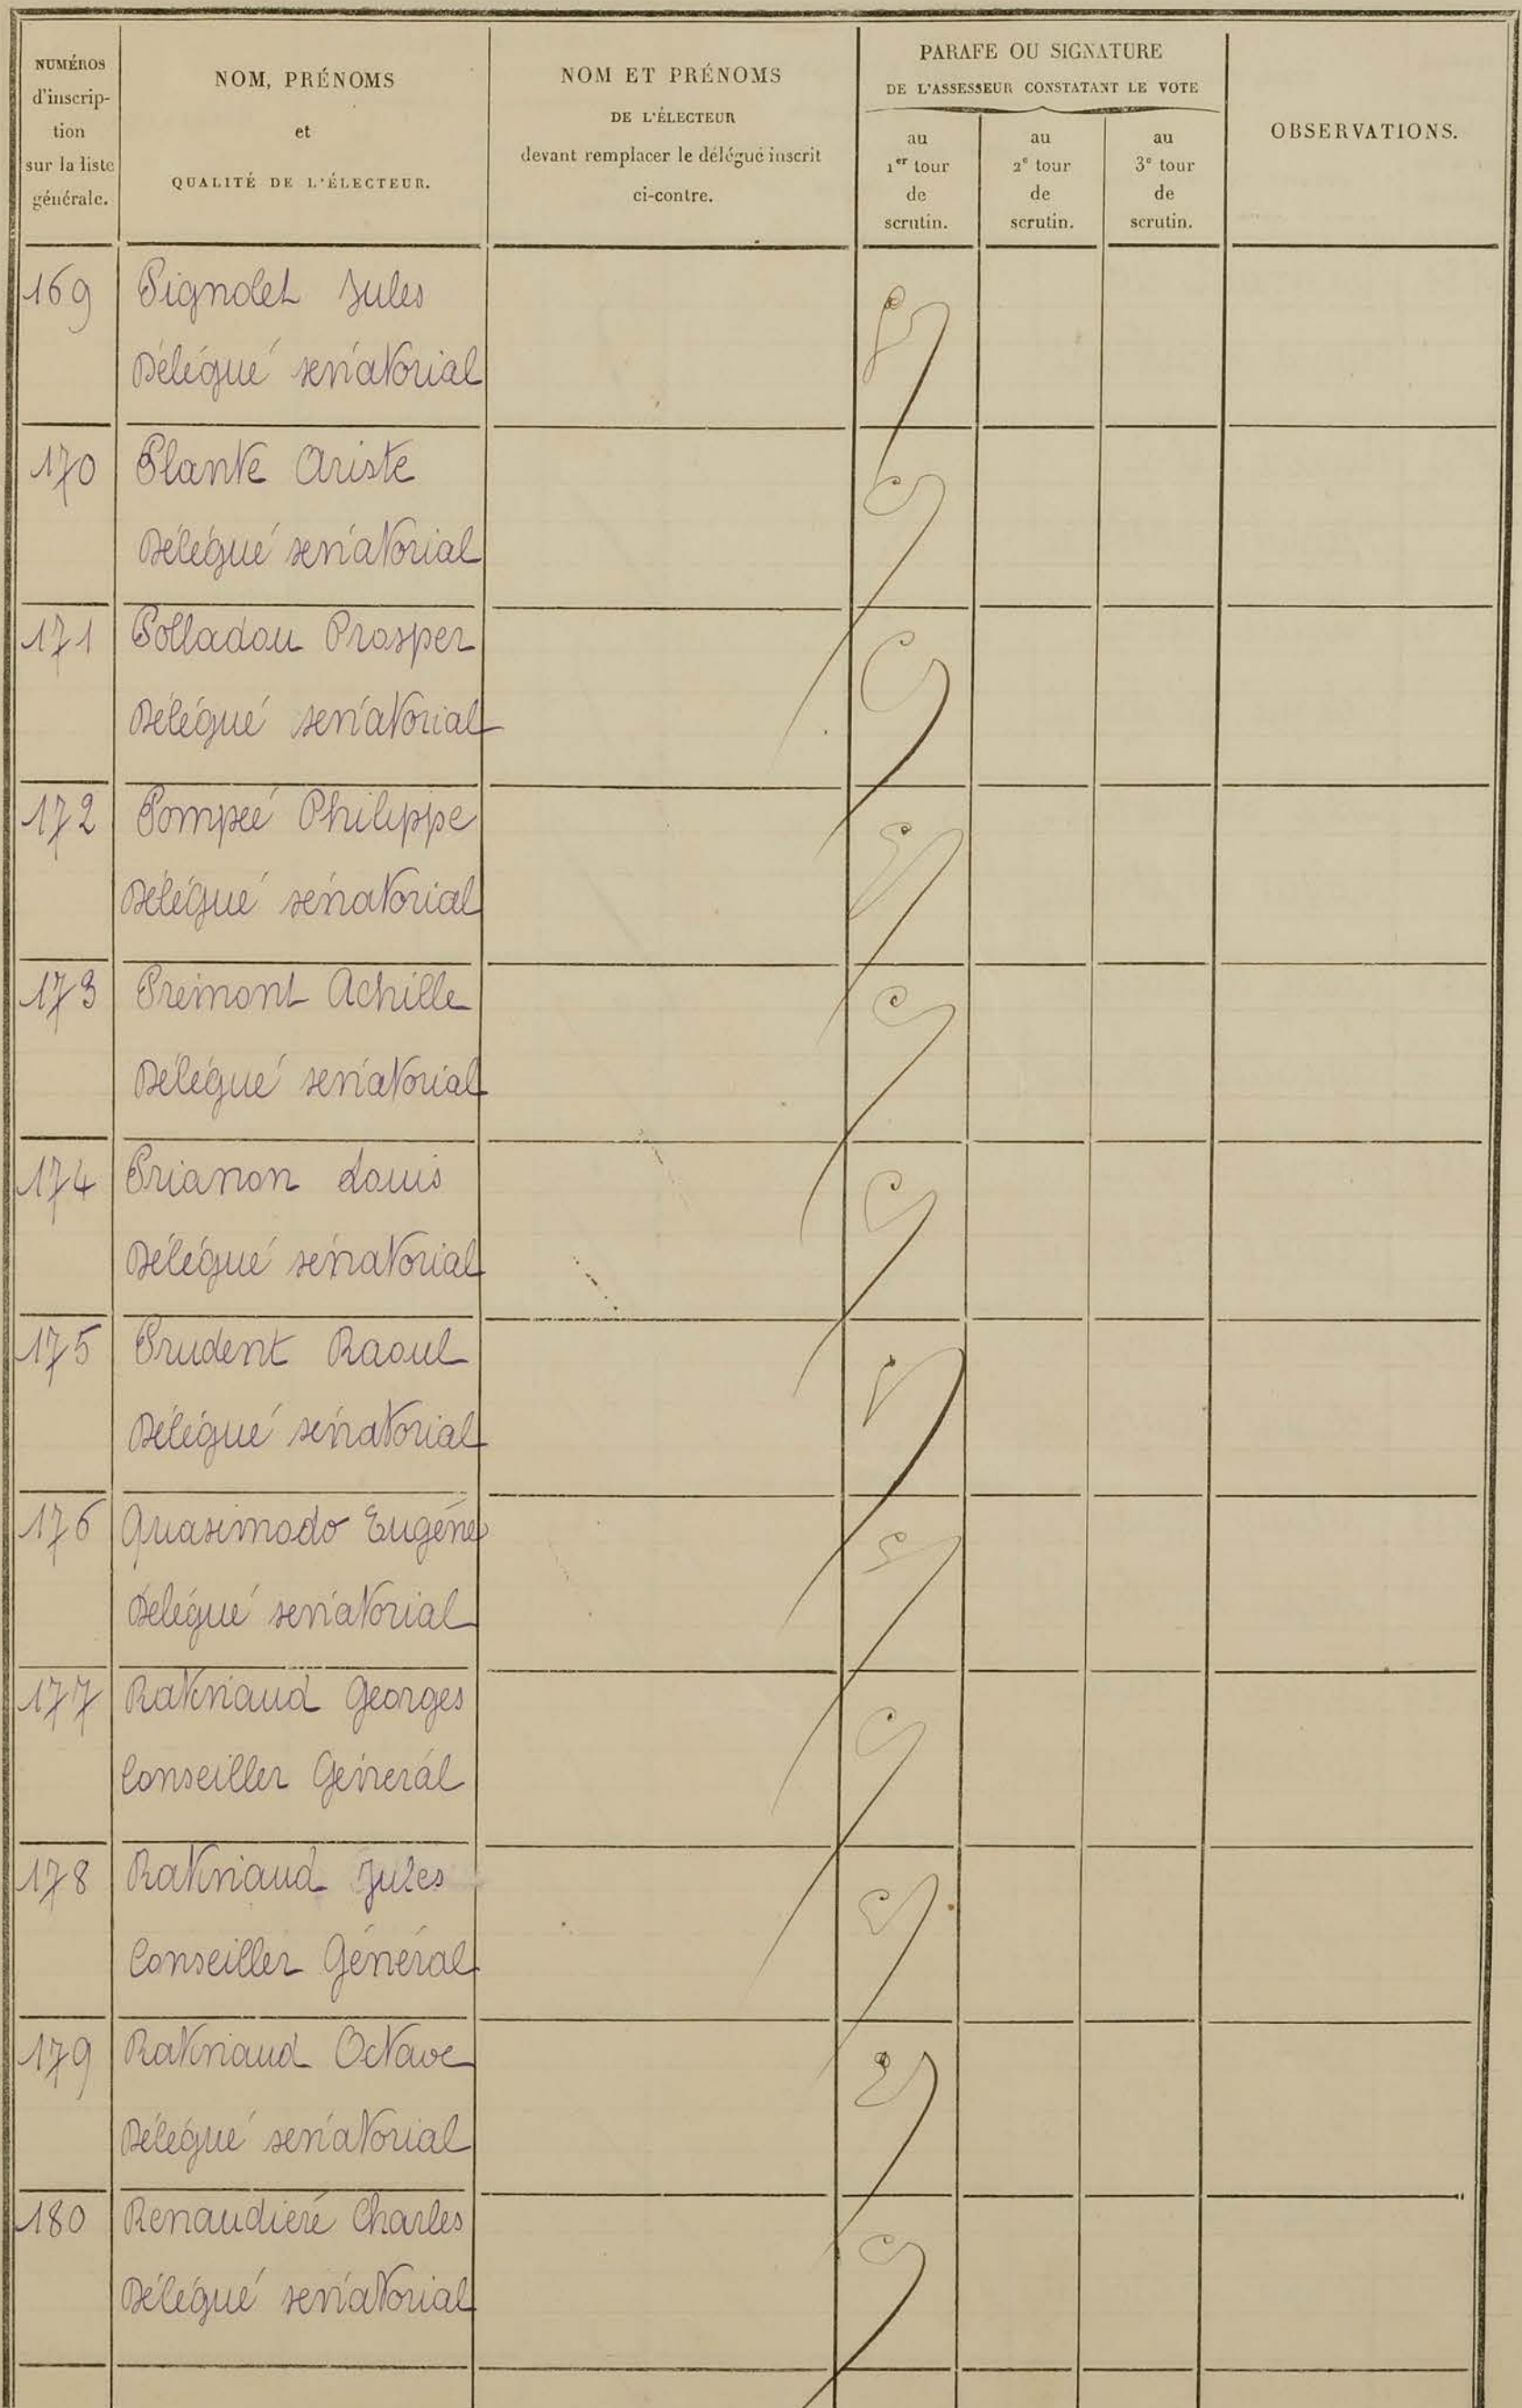 NUMÉROS
d'inscrip-
tion
sur la liste
générale.
NOM, PRÉNOMS
et
QUALITÉ DE L'ÉLECTEUR.
NOM ET PRÉNOMS
DE L'ÉLECTEUR
devant remplacer le délégué inscrit
ci-contre.
PARAFE OU SIGNATURE
DE L'ASSESSEUR CONSTATANT LE VOTE
au
1er tour
de
scrutin.
au
2e tour
de
scrutin.
au
3e tour
de
scrutin.
OBSERVATIONS.
169 Pignolet Jules
Délégué sénatorial
170 Plante Ariste
Délégué sénatorial
171 Polladou Prosper
Délégué sénatorial
172 Pompée Philippe
Délégué sénatorial
173 Prémont Achille
Délégué sénatorial
174 Prianon Louis
Délégué sénatorial
175 Prudent Raoul
Délégué sénatorial
176 Quasimodo Eugène
Délégué sénatorial
177 Ratinaud Georges
Conseiller Général
178 Ratinaud Jules
Conseiller Général
179 Ratinaud Octave
Délégué sénatorial
180 Renaudière Charles
Délégué sénatorial